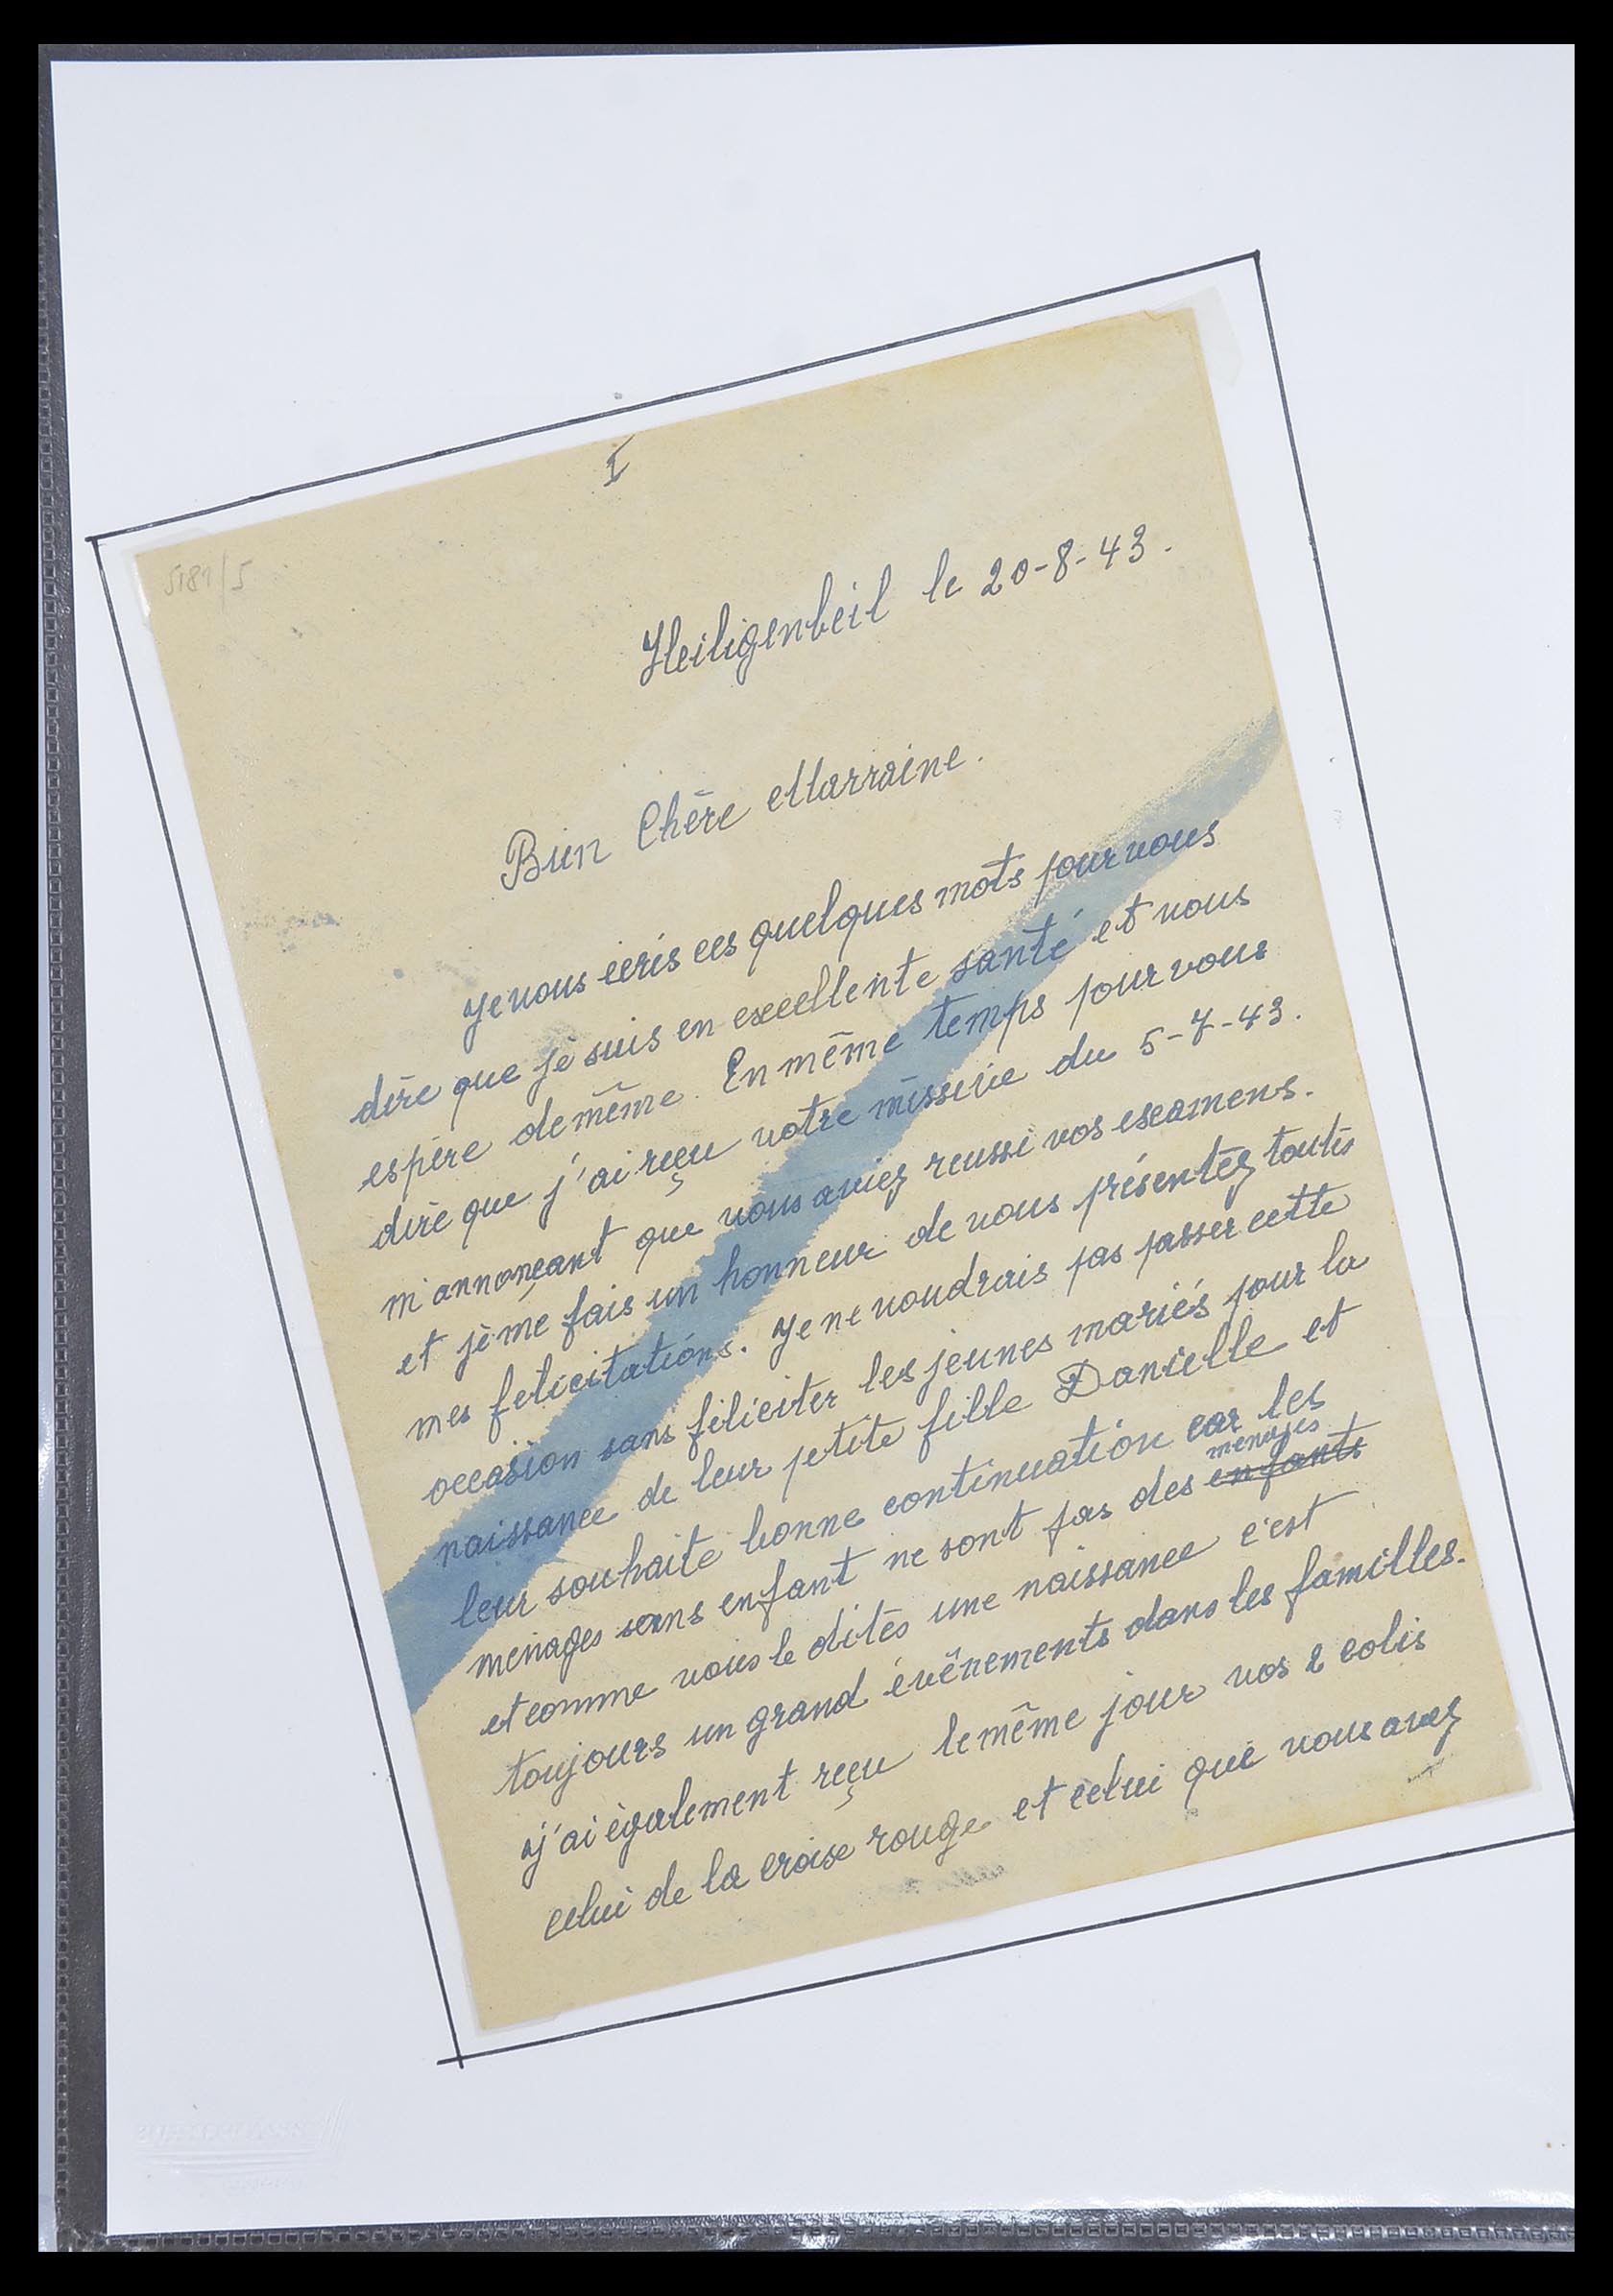 I
5181/5
Heiligenbeil le 20-8-43.
Bien Chère Marraine.
Je vous écris ces quelques mots pour vous
dire que je suis en excellente santé et vous
espère de même. En même temps pour vous
dire que j'ai reçu votre missive du 5-7-43.
m'annonçant que vous aviez reussi vos examens.
et je me fais un honneur de vous présentez toutes
mes felicitations. Je ne voudrais pas passer cette
occasion sans féliciter les jeunes mariés pour la
naissance de leur petite fille Danielle et
leur souhaite bonne continuation car les
menages sans enfant ne sont pas des enfants menages
et comme vous le dites une naissance c'est
toujours un grand évênements dans les familles.
J'ai également reçu le même jour vos 2 colis
celui de la croix rouge et celui que vous avez